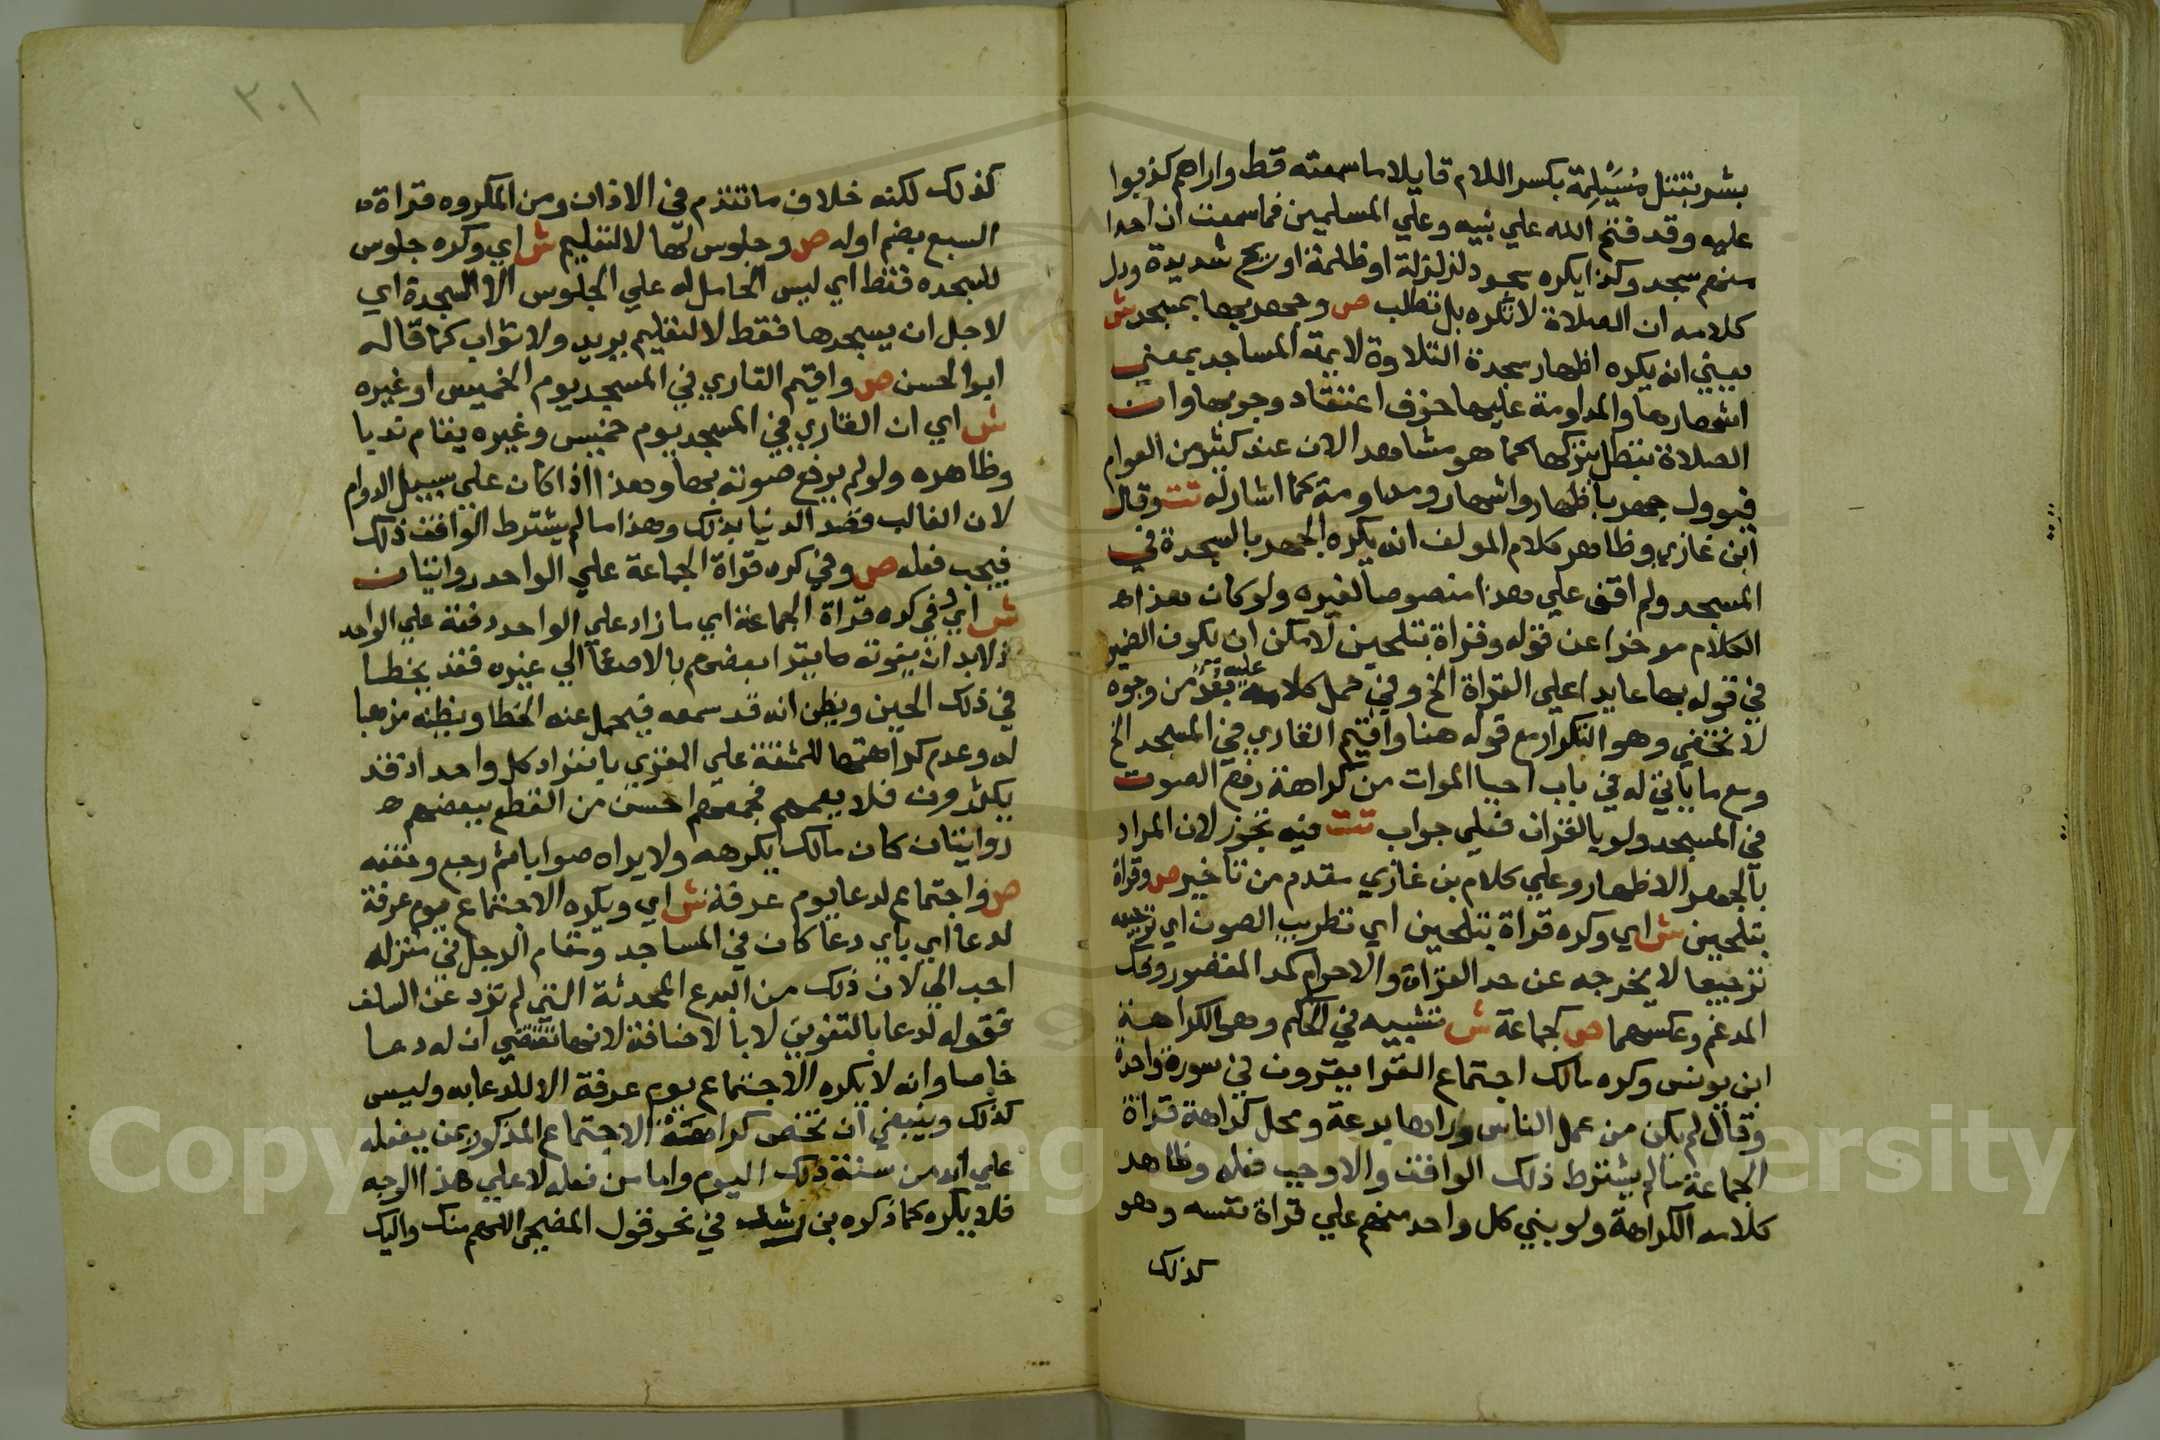 بشر بقتل مُسَيْلِمة بكسر اللام قايلا ما سمعته قط واراهم كذبوا
عليه وقد فتح الله علي نبيه وعلي المسلمين فما سمعت ان احدا
منهم سجد وكذا يكره سجود لزلزلة او ظلمة او ريح شديدة ودل
كلامه ان الصلاة لا تكره بل تطلب ص وجهر بها بمسجد ش
يعني انه يكره اظهار سجدة التلاوة لايمة المساجد بمعني
اشهارها والمداومة عليها خوف اعتقاد وجوبها وان
الصلاة تبطل بتركها كما هو مشاهد الان عند كثير من العوام
فيوول جهر باظهار واشهار ومداومة كما اشار له تت وقال
ابن غازي وظاهر كلام المولف انه يكره الجهر بالسجدة في
المسجد ولم اقف علي هذا منصوصا لغيره ولو كان هذا
الكلام موخرا عن قوله وقراة بتلحين لامكن ان يكون الضمير
في قوله بها عايدا علي القراة الخ وفي حمل كلامه عليه بُعْدٌ من وجوه
لا تخفي وهو التكرار مع قوله هنا واقيم القاري في المسجد الخ
ومع ما ياتي له في باب احيا الموات من كراهة رفع الصوت
في المسجد ولو بالقران فعلي جواب تت فيه تجوز لان المراد
بالجهر الاظهار وعلي كلام بن غازي مقدم من تاخير ص وقراة
بتلحين ش اي وكره قراة بتلحين اي تطريب الصوت اي ترجيعه
ترجيعا لا يخرجه عن حد القراة والا حرام كمد المقصور وفك
المدغم وعكسهما ص كجماعة ش تشبيه في الحكم وهي الكراهة
ابن يونس وكره مالك اجتماع القرا يقرون في سورة واحدة
وقال لم يكن من عمل الناس وراها بدعة ومحل كراهة قراة
الجماعة ما لم يشترط ذلك الواقف والا وجب فعله وظاهد
كلامه الكراهة ولو يبني كل واحد منهم علي قراة نفسه وهو
كذلك
٣٠١
كذلك لكنه خلاف ما تقدم في الاذان ومن المكروه قراة
السبع بضم اوله ص وجلوس لها لا لتعليم ش اي وكره جلوس
للسجده فقط اي ليس الحامل له علي الجلوس الا السجدة اي
لاجل ان يسجدها فقط لا لتعليم يريد ولا ثواب كما قاله
ابو الحسن ص واقيم القاري في المسجد يوم الخميس او غيره
ش اي ان القاري في المسجد يوم خميس وغيره يقام ندبا
وظاهره ولو لم يرفع صوته بها وهذا اذا كان علي سبيل الدوام
لان الغالب قصد الدنيا بذلك وهذا ما لم يشترط الواقف ذلك
فيجب فعله ص وفي كره قراة الجماعة علي الواحد روايتان
ش اي وفي كره قراة الجماعة اي ما زاد علي الواحد دفعة علي الواحد
اذ لابد ان يفوته ما يقرا بعضهم بالاصغا الي غيره فقد يخطا
في ذلك الحين ويظن انه قد سمعه فيحمل عنه الخطا ويظنه مذهبا
له وعدم كراهتها للمشقة علي المقري بانفراد كل واحد اذ قد
يكثرون فلا يعمهم فجمعهم احسن من القطع ببعضهم
روايتان كان مالك يكرهه ولا يراه صوابا ثم رجع وخففه
ص واجتماع لدعا يوم عرفة ش اي ويكره الاجتماع يوم عرفة
لدعا اي باي دعا كان في المساجد ومقام الرجل في منزله
احب الي لان ذلك من البدع المحدثة التي لم ترد عن السلف
فقوله لدعا بالتنوين لا بالاضافة لانها تقتضي ان له دعا
خاصا وانه لا يكره الاجتماع يوم عرفة الا للدعا به وليس
كذلك وينبغي ان تختص كراهة الاجتماع المذكور بمن يفعله
علي انه من سنة ذلك اليوم واما من فعله لا علي هذا الوجه
فلا يكره كما ذكره بن رشد في نحو قول المضحي اللهم منك واليك